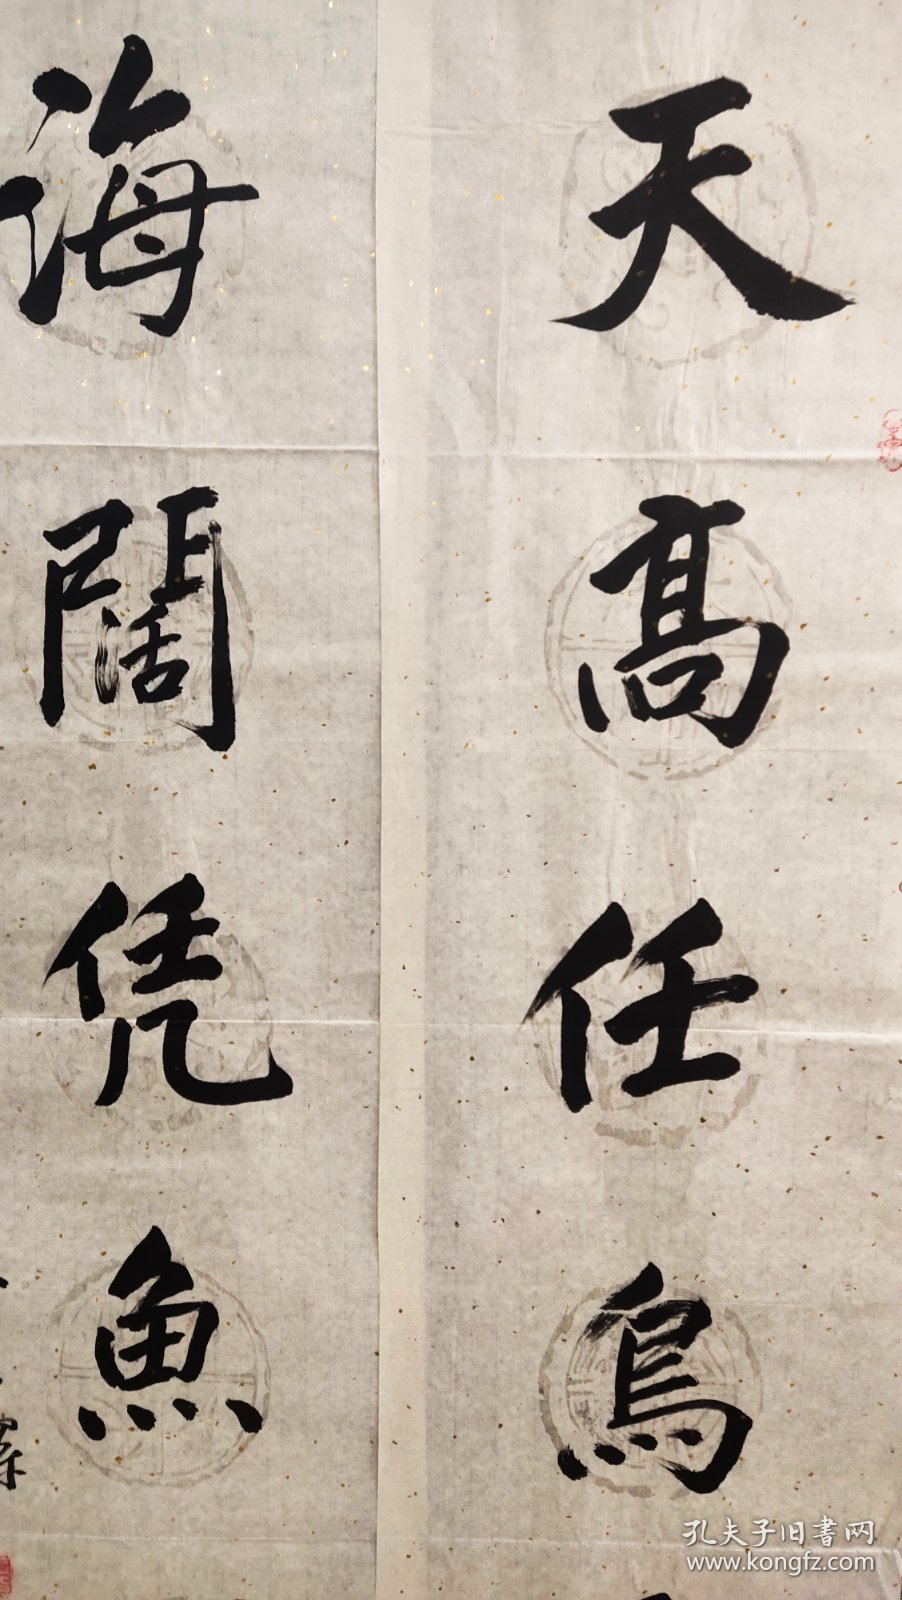 天高任鳥
海闊凭魚
孔夫子旧書网
www.kongfz.com